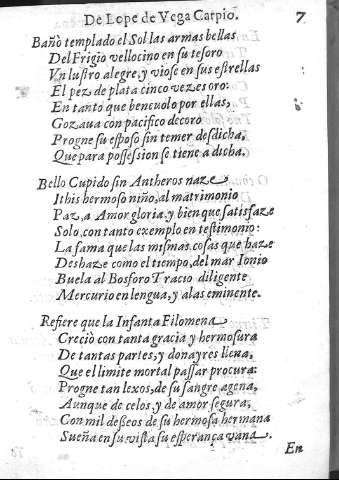 De Lope de Vega Carpio. 7
Bañò templado el Sol las armas bellas
Del Frigio vellocino en su tesoro
Vn lustro alegre, y viose en sus estrellas
El pez de plata cinco vezes oro:
En tanto que beneuolo por ellas,
Gozaua con pacifico decoro
Progne su esposo sin temer desdicha,
Que para possession se tiene a dicha.
Bello Cupido sin Antheros naze
Ithis hermoso niño, al matrimonio
Paz, a Amor gloria, y bien que satisfaze
Solo, con tanto exemplo en testimonio:
La fama que las mismas cosas que haze
Deshaze como el tiempo, del mar Ionio
Buela al Bosforo Tracio diligente
Mercurio en lengua, y alas eminente.
Refiere que la Infanta Filomena
Creciò con tanta gracia y hermosura
De tantas partes, y donayres llena,
Que el limite mortal passar procura:
Progne tan lexos, de su sangre agena,
Aunque de celos, y de amor segura,
Con mil deseos de su hermosa hermana
Sueña en su vista su esperança vana.
En